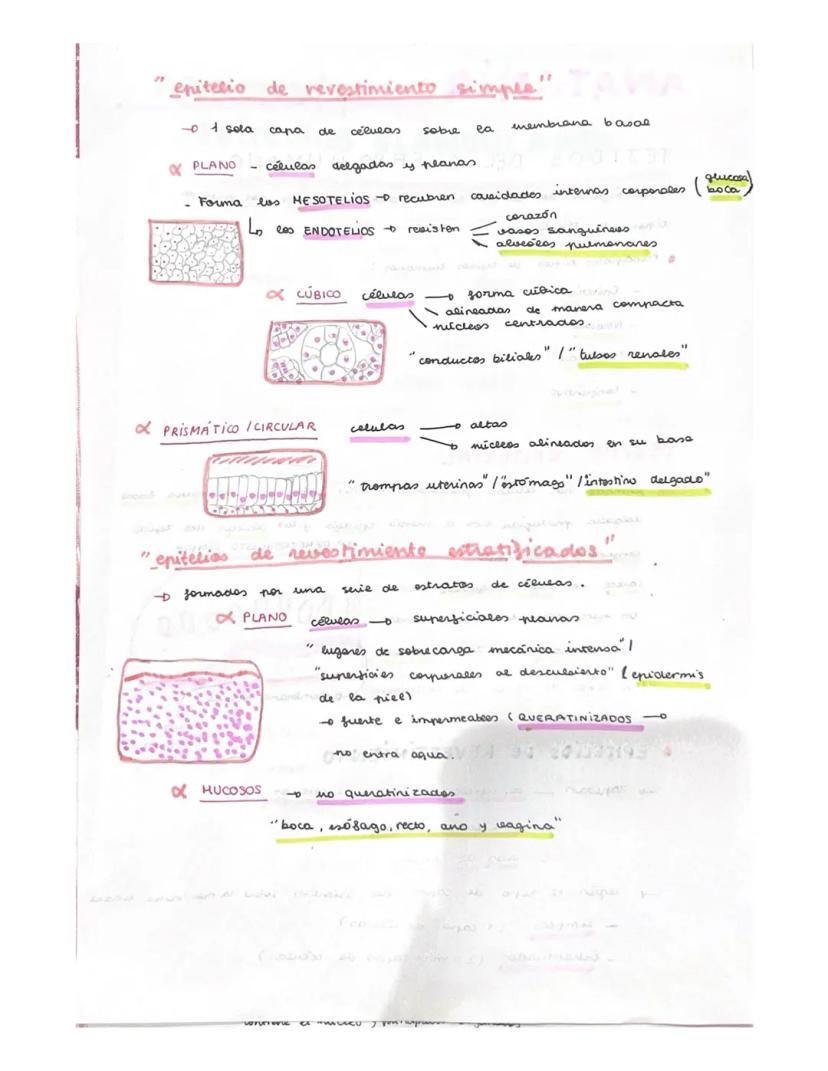 "epitelio de revestimiento simple"
→ 1 sola capa de células sobre la membrana basal
α PLANO - células delgadas y planas
- Forma los MESOTELIOS → recubren cavidades internas corporales (glucosa boca)
↳ los ENDOTELIOS → resisten
corazón
vasos sanguíneos
alveolos pulmonares
α CÚBICO células → forma cúbica
alineadas de manera compacta
núcleos centrados.
"conductos biliales" / "tubos renales"
α PRISMÁTICO / CIRCULAR células → altas
→ núcleos alineados en su base
"trompas uterinas" / "estómago" / "intestino delgado"
"epitelios de revestimiento estratificados"
→ formados por una serie de estratos de células.
α PLANO células → superficiales planas
"lugares de sobrecarga mecánica intensa" /
"superficies corporales al descubierto" (epidermis
de la piel)
→ fuerte e impermeables (QUERATINIZADOS →
no entra agua.
α MUCOSOS → no queratinizados
"boca, esófago, recto, ano y vagina"